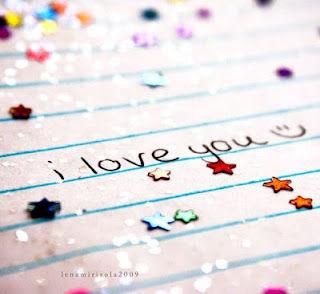 i love you
lenamirisola2009